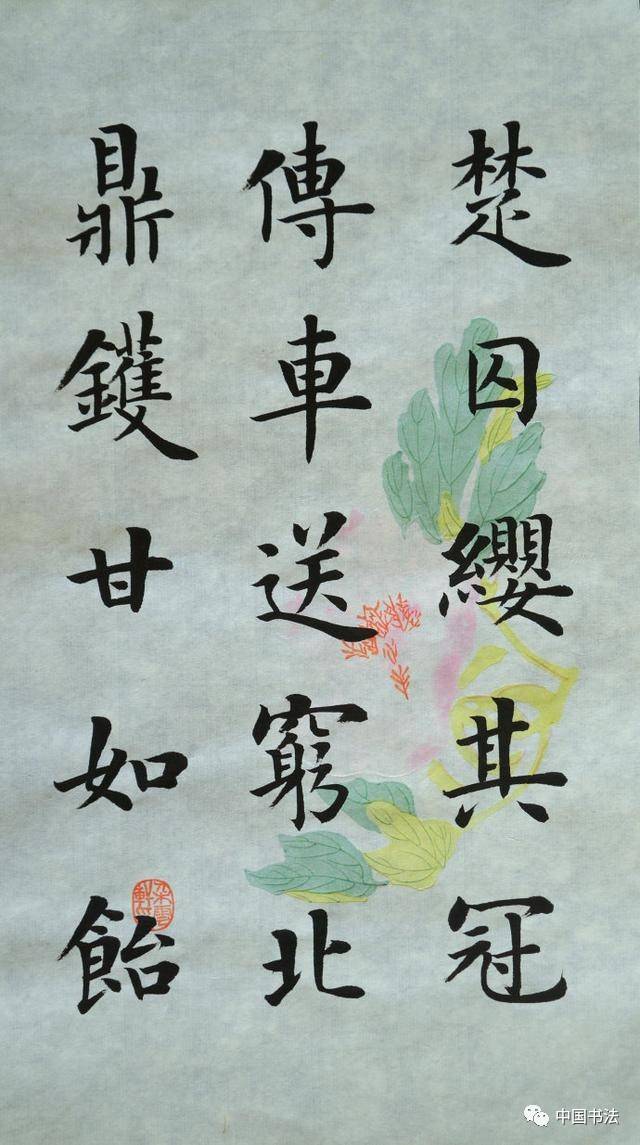 楚囚纓其冠
傳車送窮北
鼎鑊甘如飴
中国书法